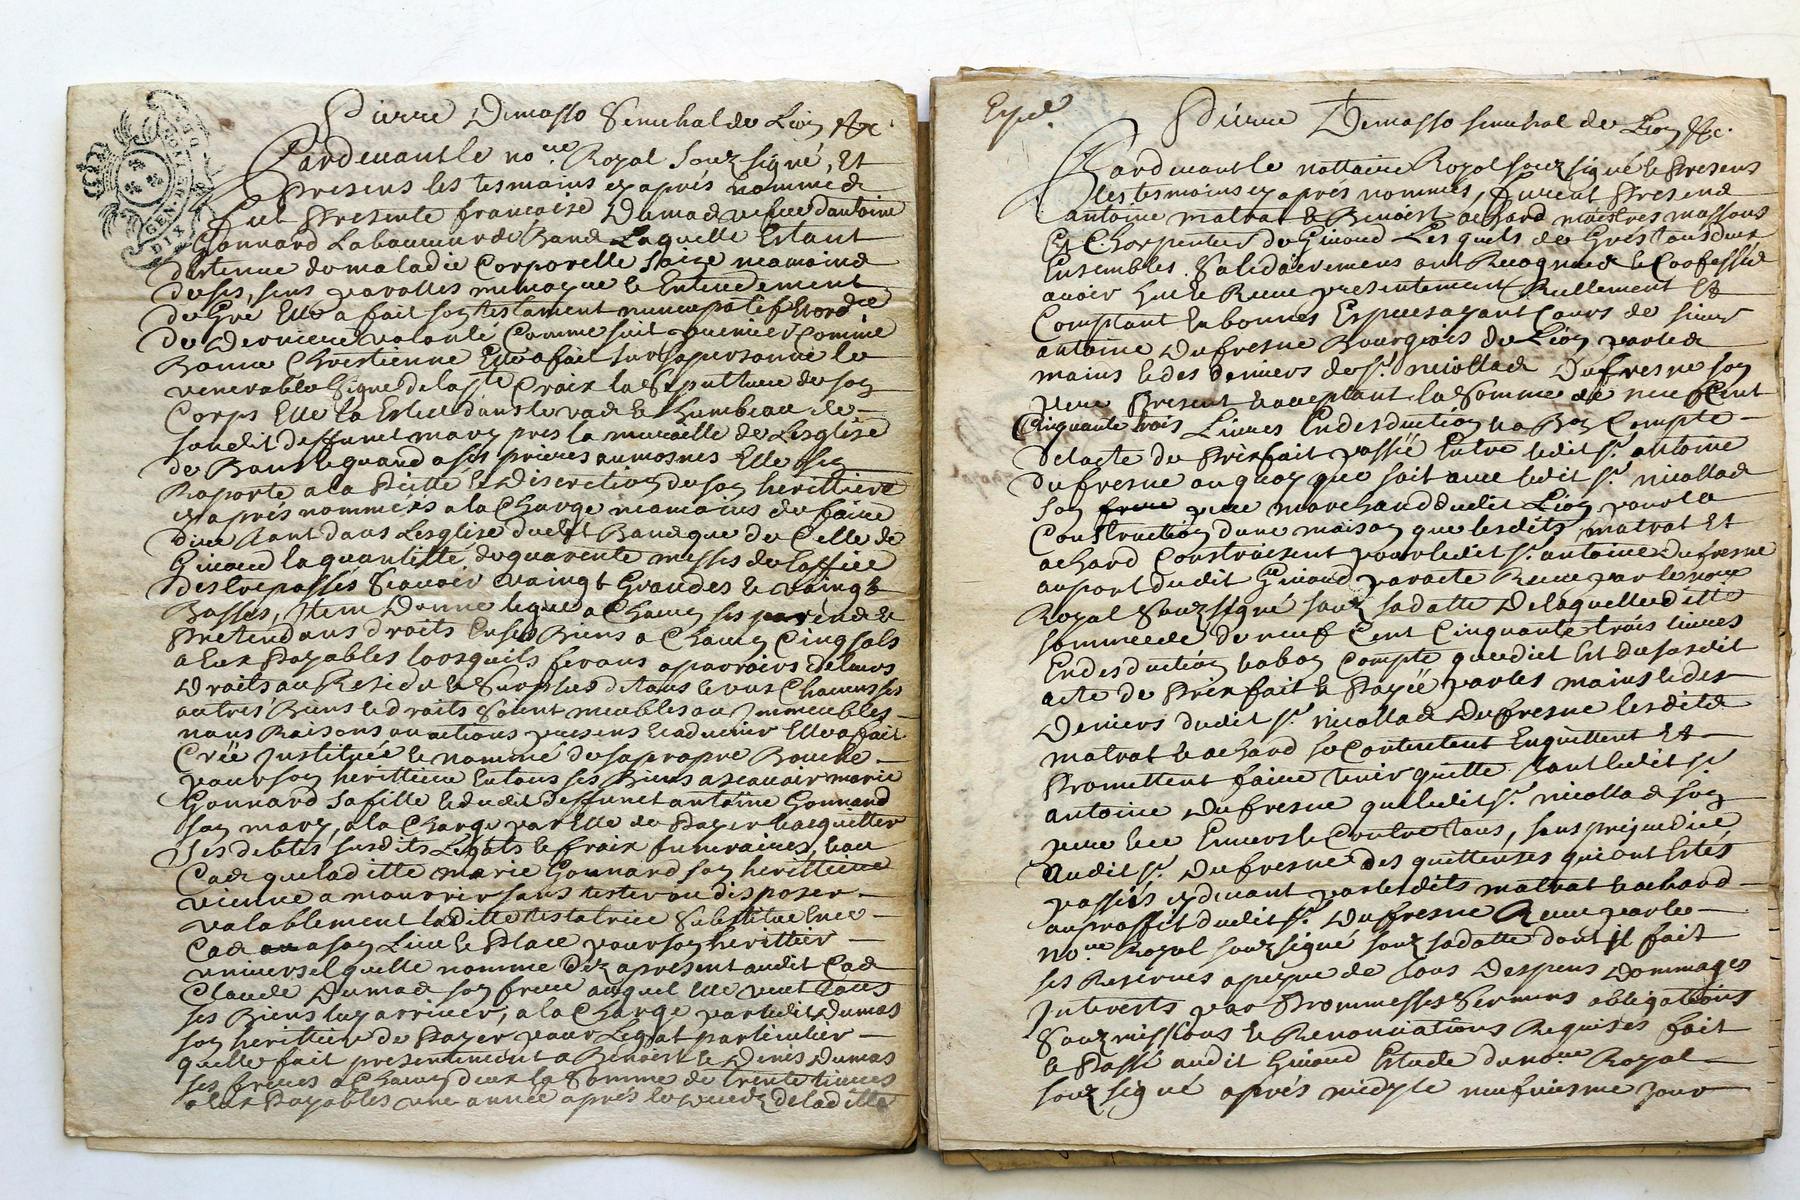 Pierre Demasso Senechal de Lion &c.
Pardevant le no.re Royal souz signé, Et
presens les tesmoins cy aprés nomméz
fut Presente francoise Dumas vefve d'antoine
Gonnard Laboureur de Bans Laquelle Estant
detenue de maladie Corporelle saize neamoins
de ses sens parolles memoyre & Entendement
de Gré Elle a fait son testament nuncupatif & ord.ce
de Derniere volonté Comme suit premier Comme
Bonne Chrestienne Elle a fait sur sa personne le
venerable signe de la s.te Croix la Sepulture de son
Corps Elle la Eslieu dans le vas & thumbeau de
soudit deffunct mary pres la muraille de Lesglise
de Bans & quand a ses prieres aumosnes Elle sen
Raporte a la Pietté & discretion de son herittiere
cy aprés nommés a la Charge neamoins de faire
dire tant dans Lesglise dudit Bans que de Celle de
Givord la quantitté de quarente messes de Loffice
des trepassés scavoir vaingt Grandes & vaingt
Basses, Item Donne legue a Chacun ses parends &
Pretendans droits en ses Biens a Chacun Cinq sols
a Eux Payables lors quils feront aparroir de leurs
Droits au Residu & Surplus de tous & uns Chacuns ses
autres Biens & droits soient meubles ou Immeubles
noms Raisons ou actions presens & advenir Elle a fait
Créé Instituée & nommé de sa propre Bouche
pour son herittiere En tous ses Biens a scavoir marie
Gonnard sa fille & dudit deffunct antoine Gonnard
son mary, a la Charge par Elle de Payer & acquitter
ses debtes susdits Legats & fraix funeraires, & au
Cas que laditte marie Gonnard son herittiere
vienne a mourir sans tester ou disposer
valablement laditte testatrice Substitue En ce
Cas a son Lieu & Place pour son herittier
universel quelle nomme dez a present audit Cas
Claude Dumas son frere auquel Elle veut tous
ses Biens luy arriver, a la Charge par ledit Dumas
son herittier de Payer pour Legat particulier
quelle fait presentement a Benoist & Denis Dumas
ses freres a Chacun deux la Somme de trente livres
a Eux Payables une année aprés le deceds de laditte
Exped.
Pierre Demasso senechal de Lion &c.
Pardevant le nottaire Royal souz signé & Presens
les tesmoins cy aprés nommés, furent Presens
antoine matrat & Benoist achard maistres massons
Et Charpentier de Givord Les quels de Gres tous deux
Ensembles Solidairemens ont Recogneu & Confessé
avoir heu & Receu presentement Reellement Et
Comptant En bonnes Especes ayant Cours de sieur
antoine Dufresne Bourgiois de Lion par les
mains & des deniers de s.r nicollas Dufresne son
pere Present & acceptant la Somme de neuf Cent
Cinquante trois Livres En desduction & a Bon Compte
de lacte de Prixfait passée Entre ledit s.r antoine
dufresne ou quoy que soit avec ledit s.r nicollas
son pere marchand dudit Lion pour la
Construction dune maison que lesdits matrat Et
achard Construisent pour ledit s.r antoine Dufresne
au port dudit Givord par acte Receu par le no.re
Royal Souz signé souz sa datte De laquelle ditte
somme de neuf Cent Cinquante trois livres
En desduction & a bon Compte que dict Est du susdit
acte de Prixfait & Payée par les mains & des
Deniers dudit s.r nicollas Dufresne lesdits
matrat & achard se Contentent Enquittent Et
Promettent faire tenir quitte tant ledit s.r
antoine Dufresne que ledit s.r nicollas son
pere Envers & Contre tous, sans prejudice
audit s.r Dufresne des quittenses qui ont Estés
passées cy devant par lesdits matrat & achard
au proffit dudit s.r Dufresne Receue par le
no.re Royal souz signé souz sa datte dont il fait
ses Reserves a peyne de tous Despens Dommages
Interests par Prommesses Sermens obligations
Souzmissions & Renonciations Requises fait
& Passé audit Givord Estude du no.re Royal
souz signé aprés midy le neufviesme jour
GEN. DE LION
DIX D.